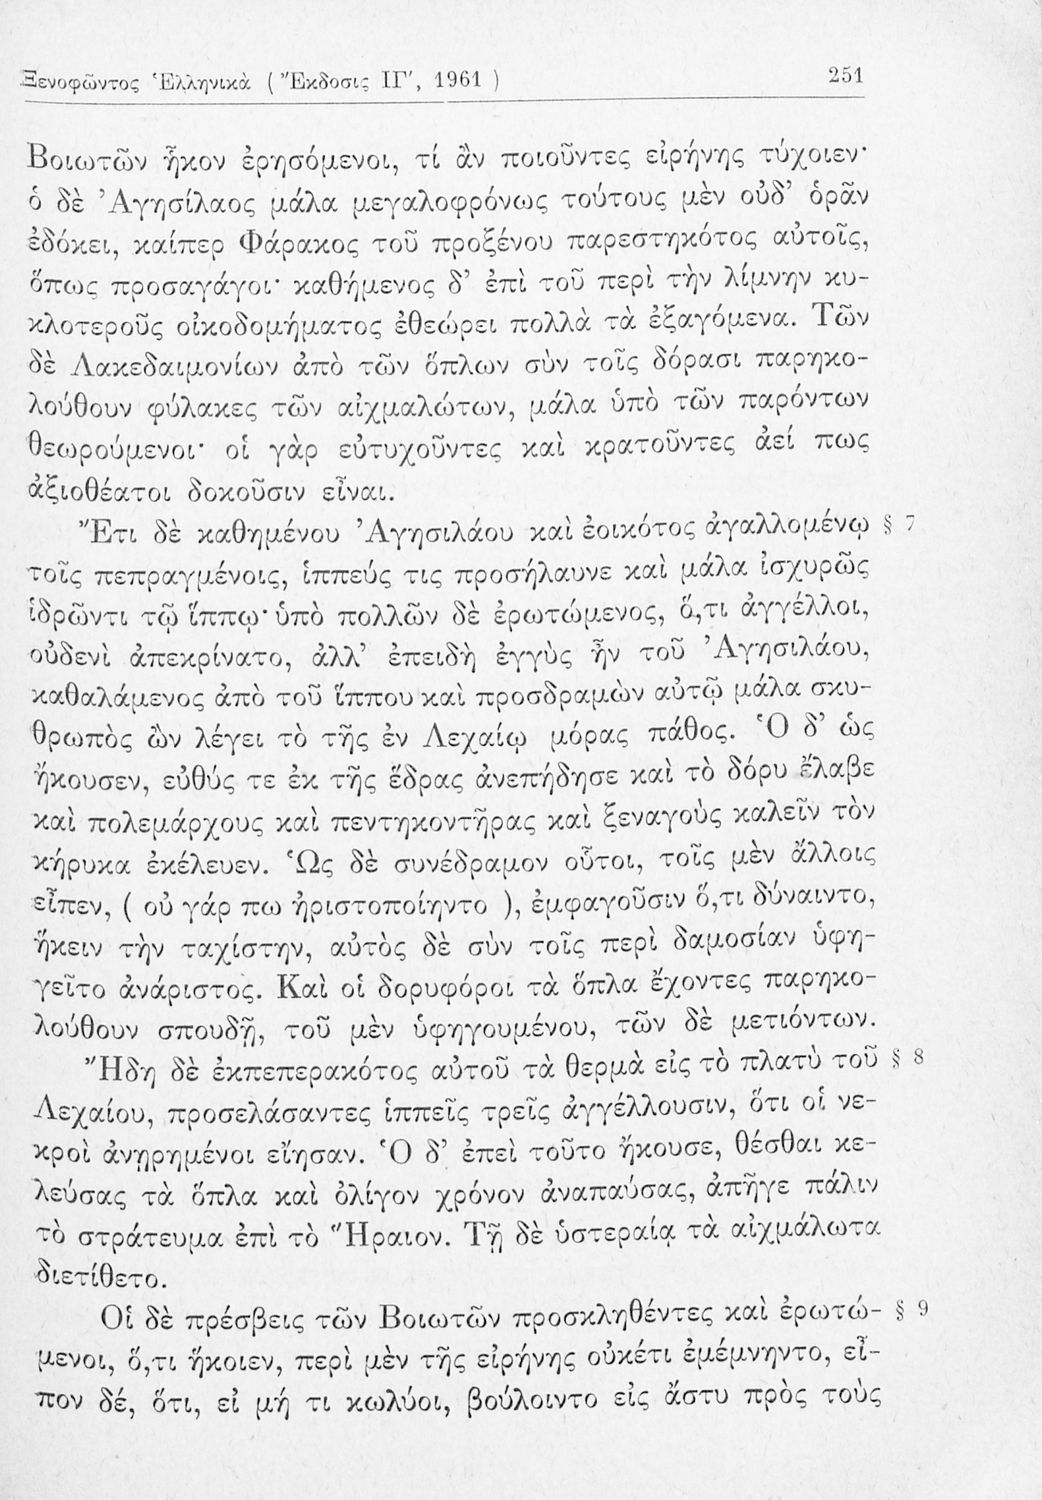 Ξενοφῶντος Ἑλληνικὰ ( Ἔκδοσις ΙΓ΄, 1961 ) 251
Βοιωτῶν ἧκον ἐρησόμενοι, τί ἂν ποιοῦντες εἰρήνης τύχοιεν·
ὁ δὲ Ἀγησίλαος μάλα μεγαλοφρόνως τούτους μὲν οὐδ’ ὁρᾶν
ἐδόκει, καίπερ Φάρακος τοῦ προξένου παρεστηκότος αὐτοῖς,
ὅπως προσαγάγοι· καθήμενος δ’ ἐπὶ τοῦ περὶ τὴν λίμνην κυ-
κλοτεροῦς οἰκοδομήματος ἐθεώρει πολλὰ τὰ ἐξαγόμενα. Τῶν
δὲ Λακεδαιμονίων ἀπὸ τῶν ὅπλων σὺν τοῖς δόρασι παρηκο-
λούθουν φύλακες τῶν αἰχμαλώτων, μάλα ὑπὸ τῶν παρόντων
θεωρούμενοι· οἱ γὰρ εὐτυχοῦντες καὶ κρατοῦντες ἀεί πως
ἀξιοθέατοι δοκοῦσιν εἶναι.
Ἔτι δὲ καθημένου Ἀγησιλάου καὶ ἐοικότος ἀγαλλομένῳ § 7
τοῖς πεπραγμένοις, ἱππεύς τις προσήλαυνε καὶ μάλα ἰσχυρῶς
ἱδρῶντι τῷ ἵππῳ· ὑπὸ πολλῶν δὲ ἐρωτώμενος, ὅ,τι ἀγγέλλοι,
οὐδενὶ ἀπεκρίνατο, ἀλλ’ ἐπειδὴ ἐγγὺς ἦν τοῦ Ἀγησιλάου,
καθαλάμενος ἀπὸ τοῦ ἵππου καὶ προσδραμὼν αὐτῷ μάλα σκυ-
θρωπὸς ὢν λέγει τὸ τῆς ἐν Λεχαίῳ μόρας πάθος. Ὁ δ’ ὡς
ἤκουσεν, εὐθύς τε ἐκ τῆς ἕδρας ἀνεπήδησε καὶ τὸ δόρυ ἔλαβε
καὶ πολεμάρχους καὶ πεντηκοντῆρας καὶ ξεναγοὺς καλεῖν τὸν
κήρυκα ἐκέλευεν. Ὡς δὲ συνέδραμον οὗτοι, τοῖς μὲν ἄλλοις
εἶπεν, ( οὐ γάρ πω ἠριστοποίηντο ), ἐμφαγοῦσιν ὅ,τι δύναιντο,
ἥκειν τὴν ταχίστην, αὐτὸς δὲ σὺν τοῖς περὶ δαμοσίαν ὑφη-
γεῖτο ἀνάριστος. Καὶ οἱ δορυφόροι τὰ ὅπλα ἔχοντες παρηκο-
λούθουν σπουδῇ, τοῦ μὲν ὑφηγουμένου, τῶν δὲ μετιόντων.
Ἤδη δὲ ἐκπεπερακότος αὐτοῦ τὰ θερμὰ εἰς τὸ πλατὺ τοῦ § 8
Λεχαίου, προσελάσαντες ἱππεῖς τρεῖς ἀγγέλλουσιν, ὅτι οἱ νε-
κροὶ ἀνῃρημένοι εἴησαν. Ὁ δ’ ἐπεὶ τοῦτο ἤκουσε, θέσθαι κε-
λεύσας τὰ ὅπλα καὶ ὀλίγον χρόνον ἀναπαύσας, ἀπῆγε πάλιν
τὸ στράτευμα ἐπὶ τὸ Ἥραιον. Τῇ δὲ ὑστεραίᾳ τὰ αἰχμάλωτα
διετίθετο.
Οἱ δὲ πρέσβεις τῶν Βοιωτῶν προσκληθέντες καὶ ἐρωτώ- § 9
μενοι, ὅ,τι ἥκοιεν, περὶ μὲν τῆς εἰρήνης οὐκέτι ἐμέμνηντο, εἶ-
πον δέ, ὅτι, εἰ μή τι κωλύοι, βούλοιντο εἰς ἄστυ πρὸς τοὺς